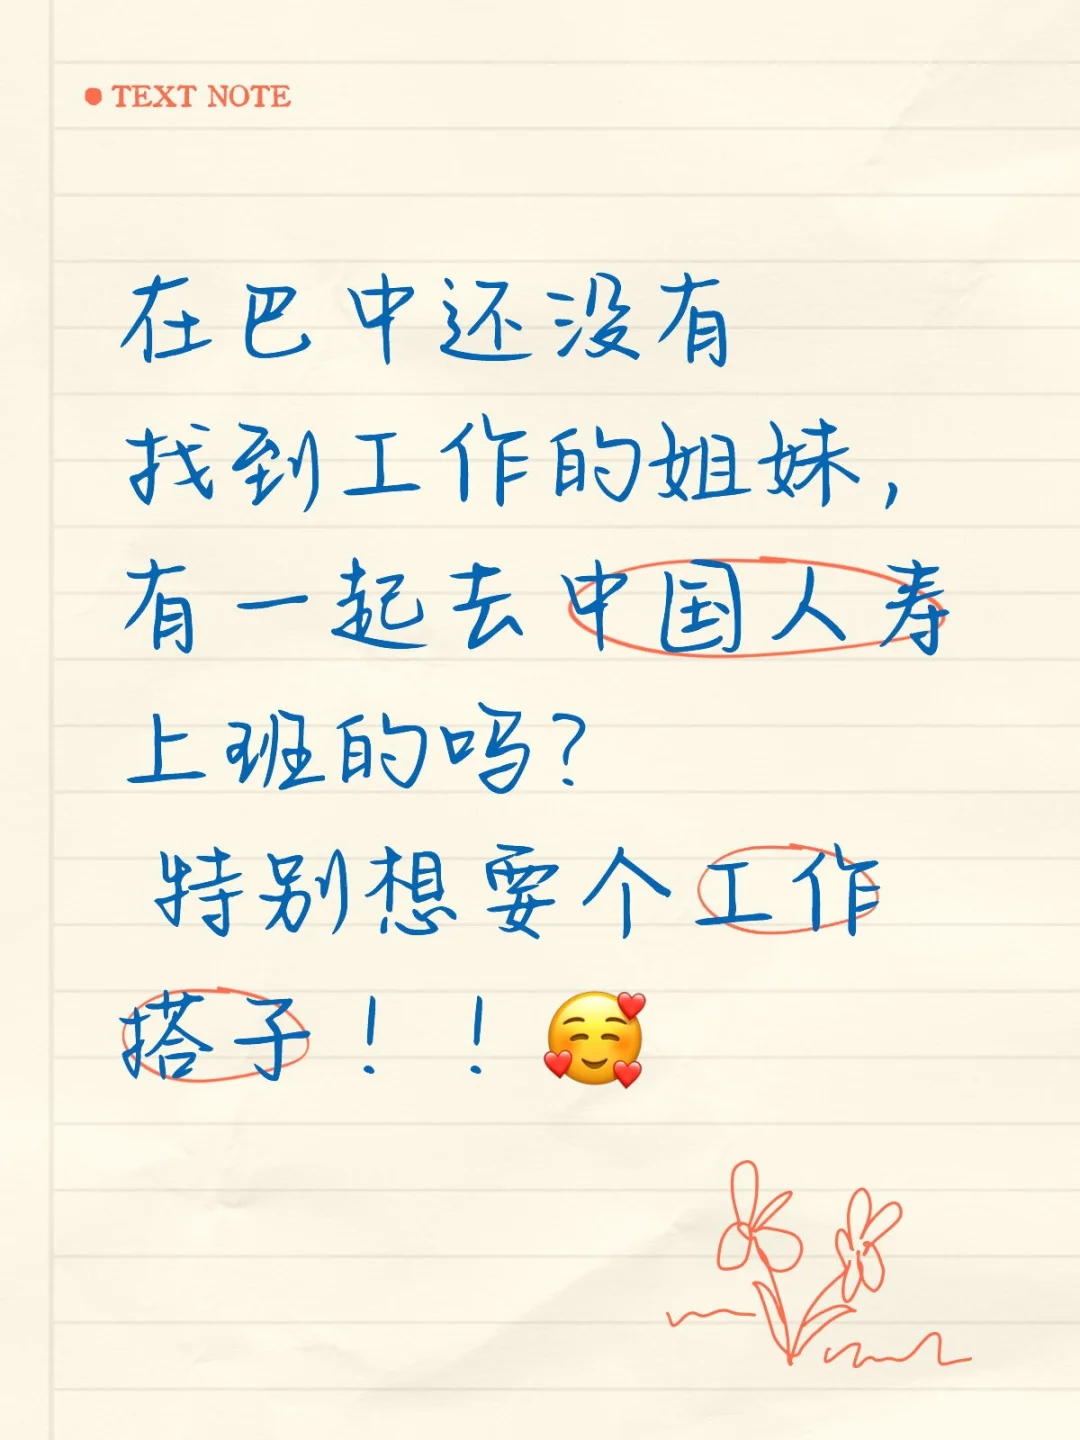 TEXT NOTE
在巴中还没有
找到工作的姐妹，
有一起去中国人寿
上班的吗？
特别想要个工作
搭子！！🥰